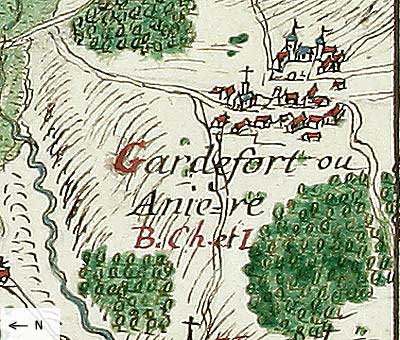 Gardefort ou
Aniesre
B. Ch. et I
N